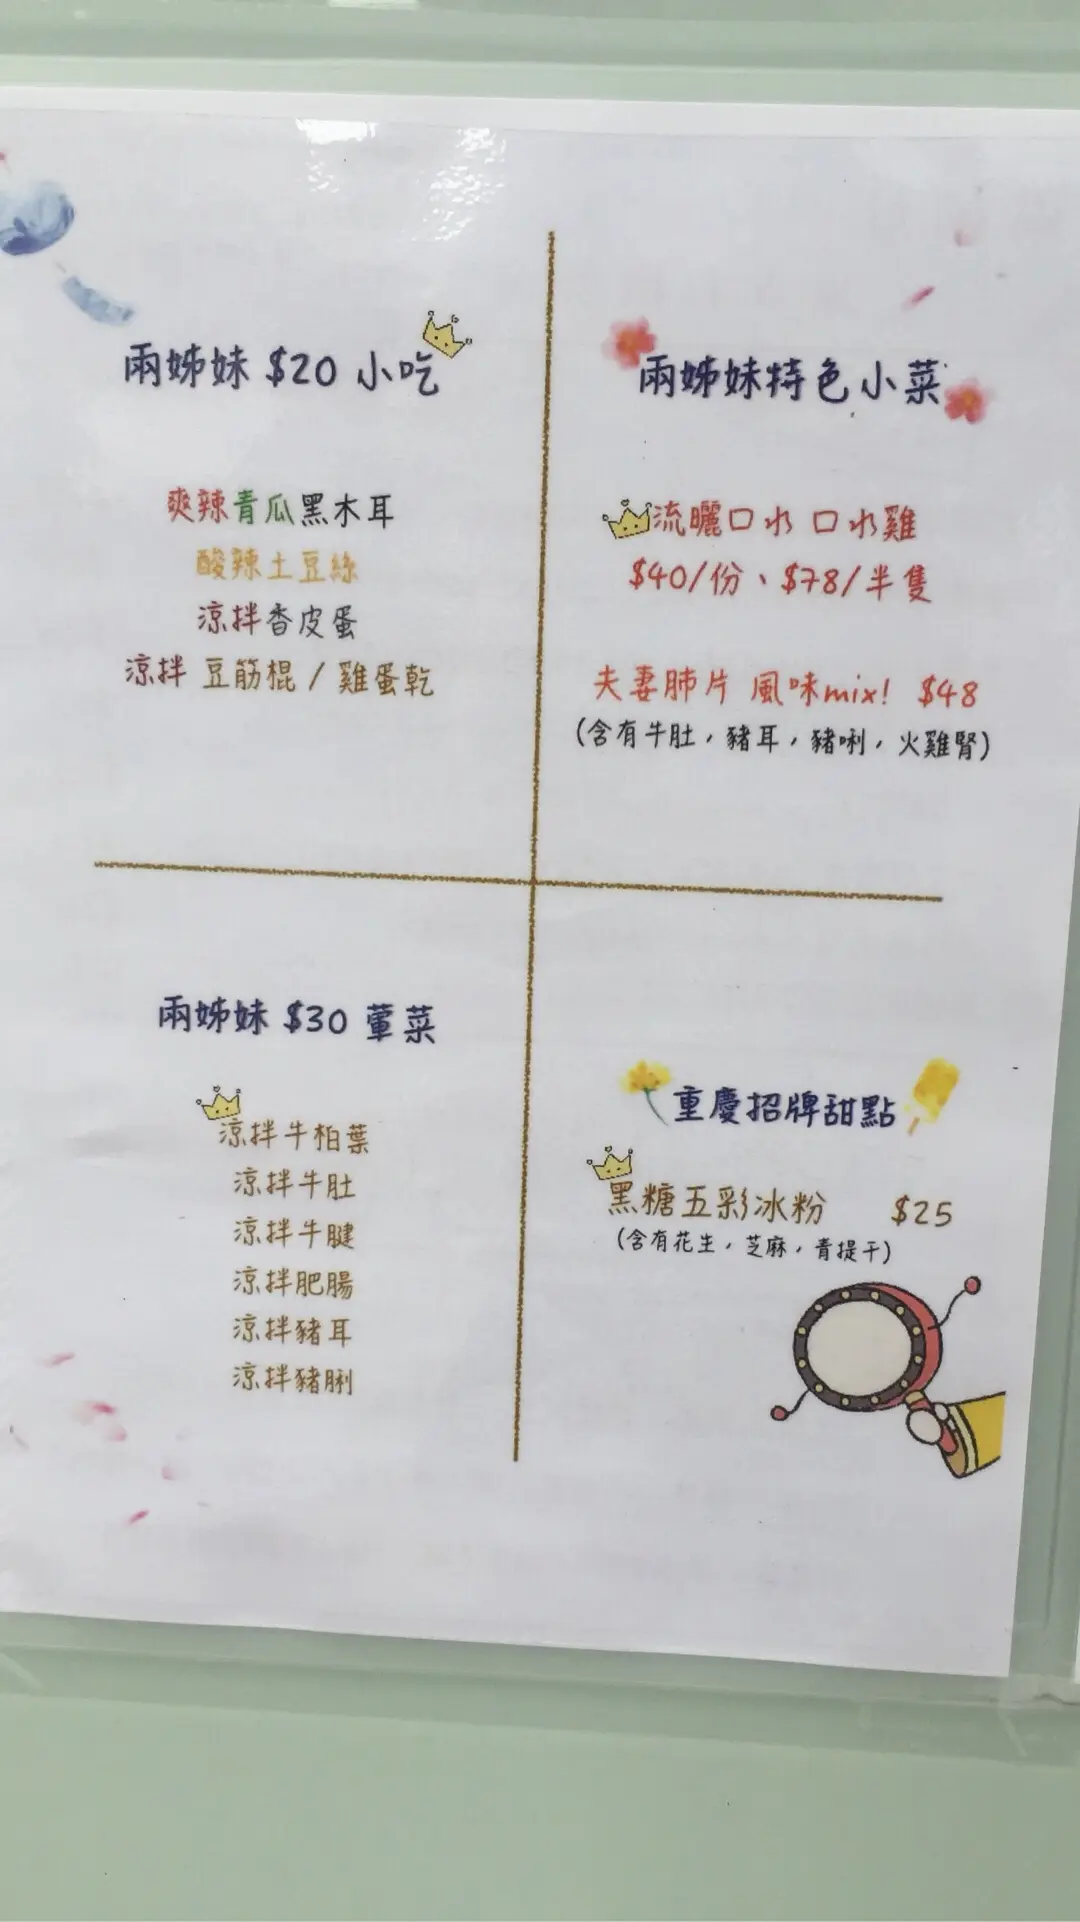 兩姊妹 $20 小吃
爽辣青瓜黑木耳
酸辣土豆絲
涼拌香皮蛋
涼拌 豆筋棍 / 雞蛋乾
兩姊妹特色小菜
流曬口水 口水雞
$40/份、$78/半隻
夫妻肺片 風味mix! $48
(含有牛肚，豬耳，豬唎，火雞腎)
兩姊妹 $30 葷菜
涼拌牛柏葉
涼拌牛肚
涼拌牛腱
涼拌肥腸
涼拌豬耳
涼拌豬脷
重慶招牌甜點
黑糖五彩冰粉 $25
(含有花生，芝麻，青提干)